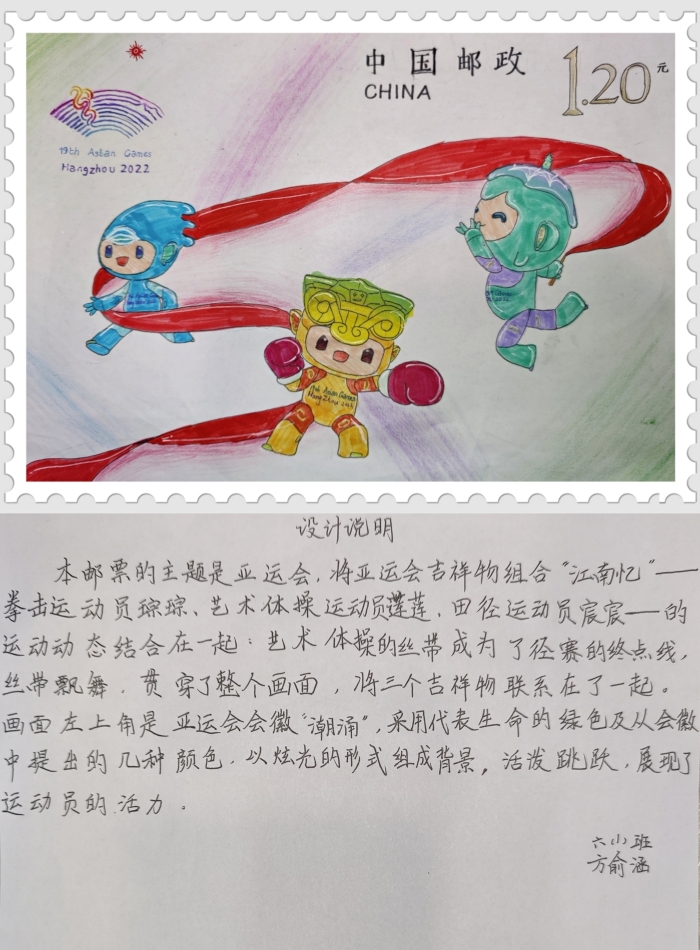 中国邮政
CHINA
1.20元
19th Asian Games
Hangzhou 2022
19th Asian Games
Hang Zhou 2022
设计说明
本邮票的主题是亚运会，将亚运会吉祥物组合“江南忆”——
拳击运动员琮琮、艺术体操运动员莲莲、田径运动员宸宸——的
运动动态结合在一起：艺术体操的丝带成为了径赛的终点线，
丝带飘舞，贯穿了整个画面，将三个吉祥物联系在了一起。
画面左上角是亚运会会徽“潮涌”，采用代表生命的绿色及从会徽
中提出的几种颜色，以炫光的形式组成背景。活泼跳跃，展现了
运动员的活力。
六(1)班
方俞涵